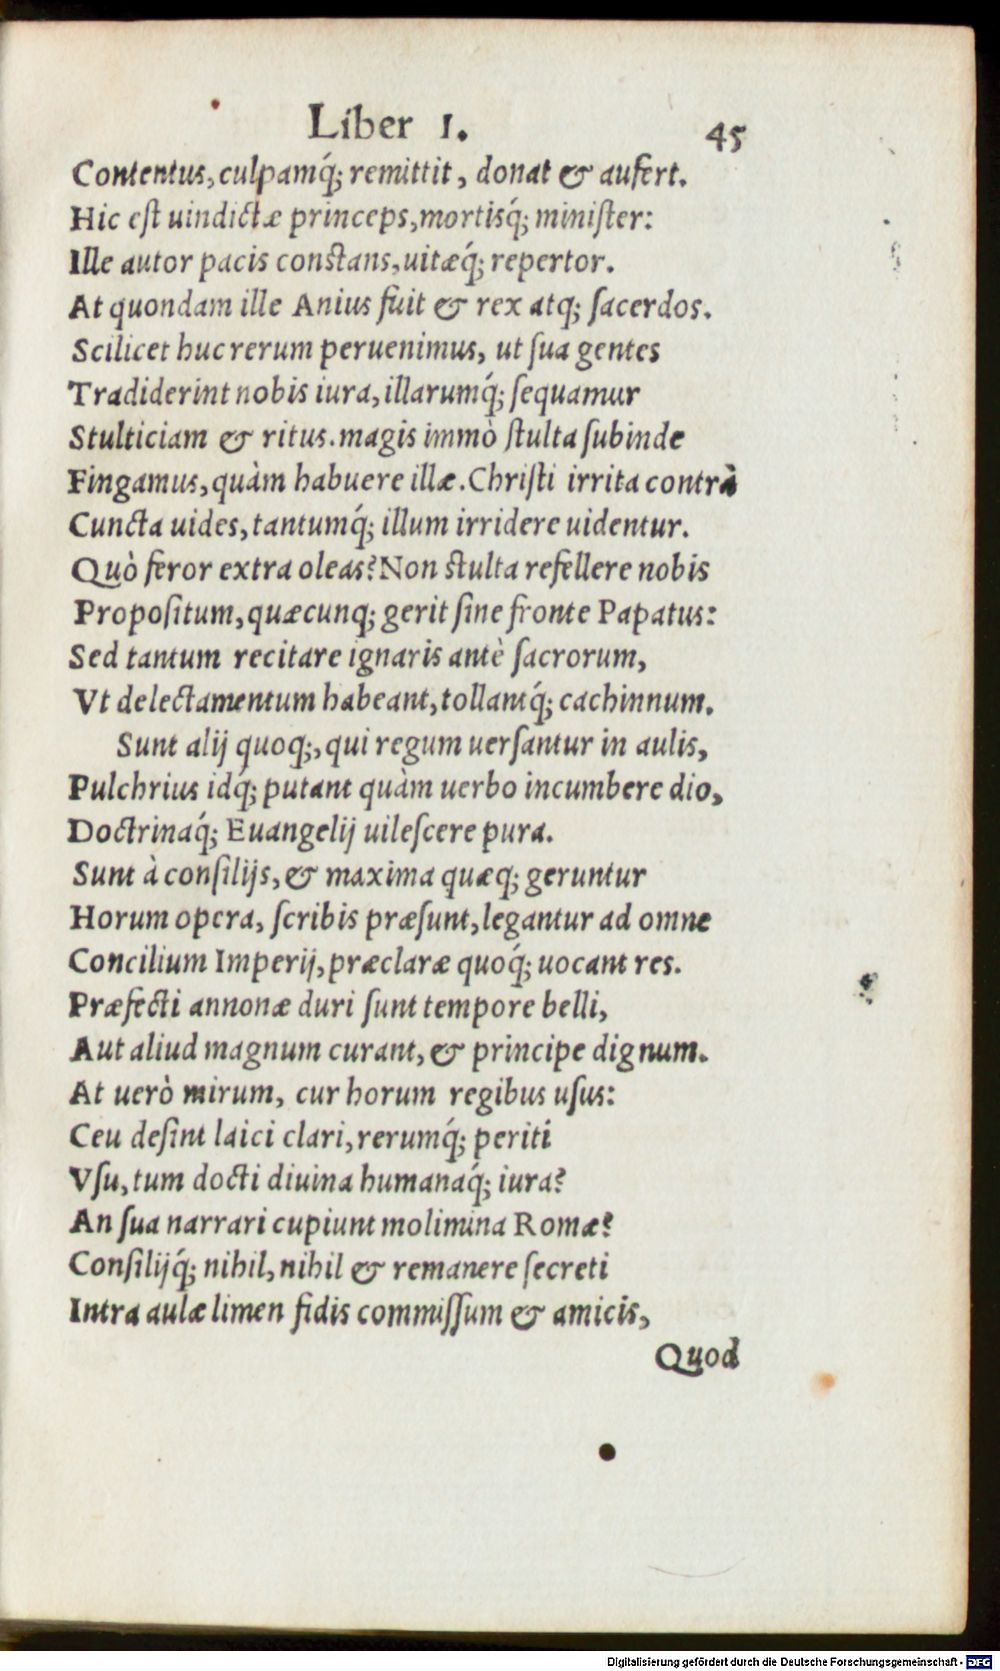 Liber 1. 45
Contentus, culpamq́; remittit, donat & aufert.
Hic est uindictæ princeps, mortisq́; minister:
Ille autor pacis constans, uitæq́; repertor.
At quondam ille Anius fuit & rex atq; sacerdos.
Scilicet huc rerum peruenimus, ut sua gentes
Tradiderint nobis iura, illarumq́; sequamur
Stulticiam & ritus. magis immò stulta subinde
Fingamus, quàm habuere illæ. Christi irrita contrà
Cuncta uides, tantumq́; illum irridere uidentur.
Quò feror extra oleas? Non stulta refellere nobis
Propositum, quæcunq; gerit sine fronte Papatus:
Sed tantum recitare ignaris antè sacrorum,
Vt delectamentum habeant, tollantq́; cachinnum.
Sunt alij quoq;, qui regum uersantur in aulis,
Pulchrius idq́; putant quàm uerbo incumbere dio,
Doctrinaq́; Euangelij uilescere pura.
Sunt à consilijs, & maxima quæq; geruntur
Horum opera, scribis præsunt, legantur ad omne
Concilium Imperij, præclaræ quoq́; uocant res.
Præfecti annonæ duri sunt tempore belli,
Aut aliud magnum curant, & principe dignum.
At uerò mirum, cur horum regibus usus:
Ceu desint laici clari, rerumq́; periti
Vsu, tum docti diuina humanaq́; iura?
An sua narrari cupiunt molimina Romæ?
Consilijq́; nihil, nihil & remanere secreti
Intra aulæ limen fidis commissum & amicis,
Quod
Digitalisierung gefördert durch die Deutsche Forschungsgemeinschaft - DFG